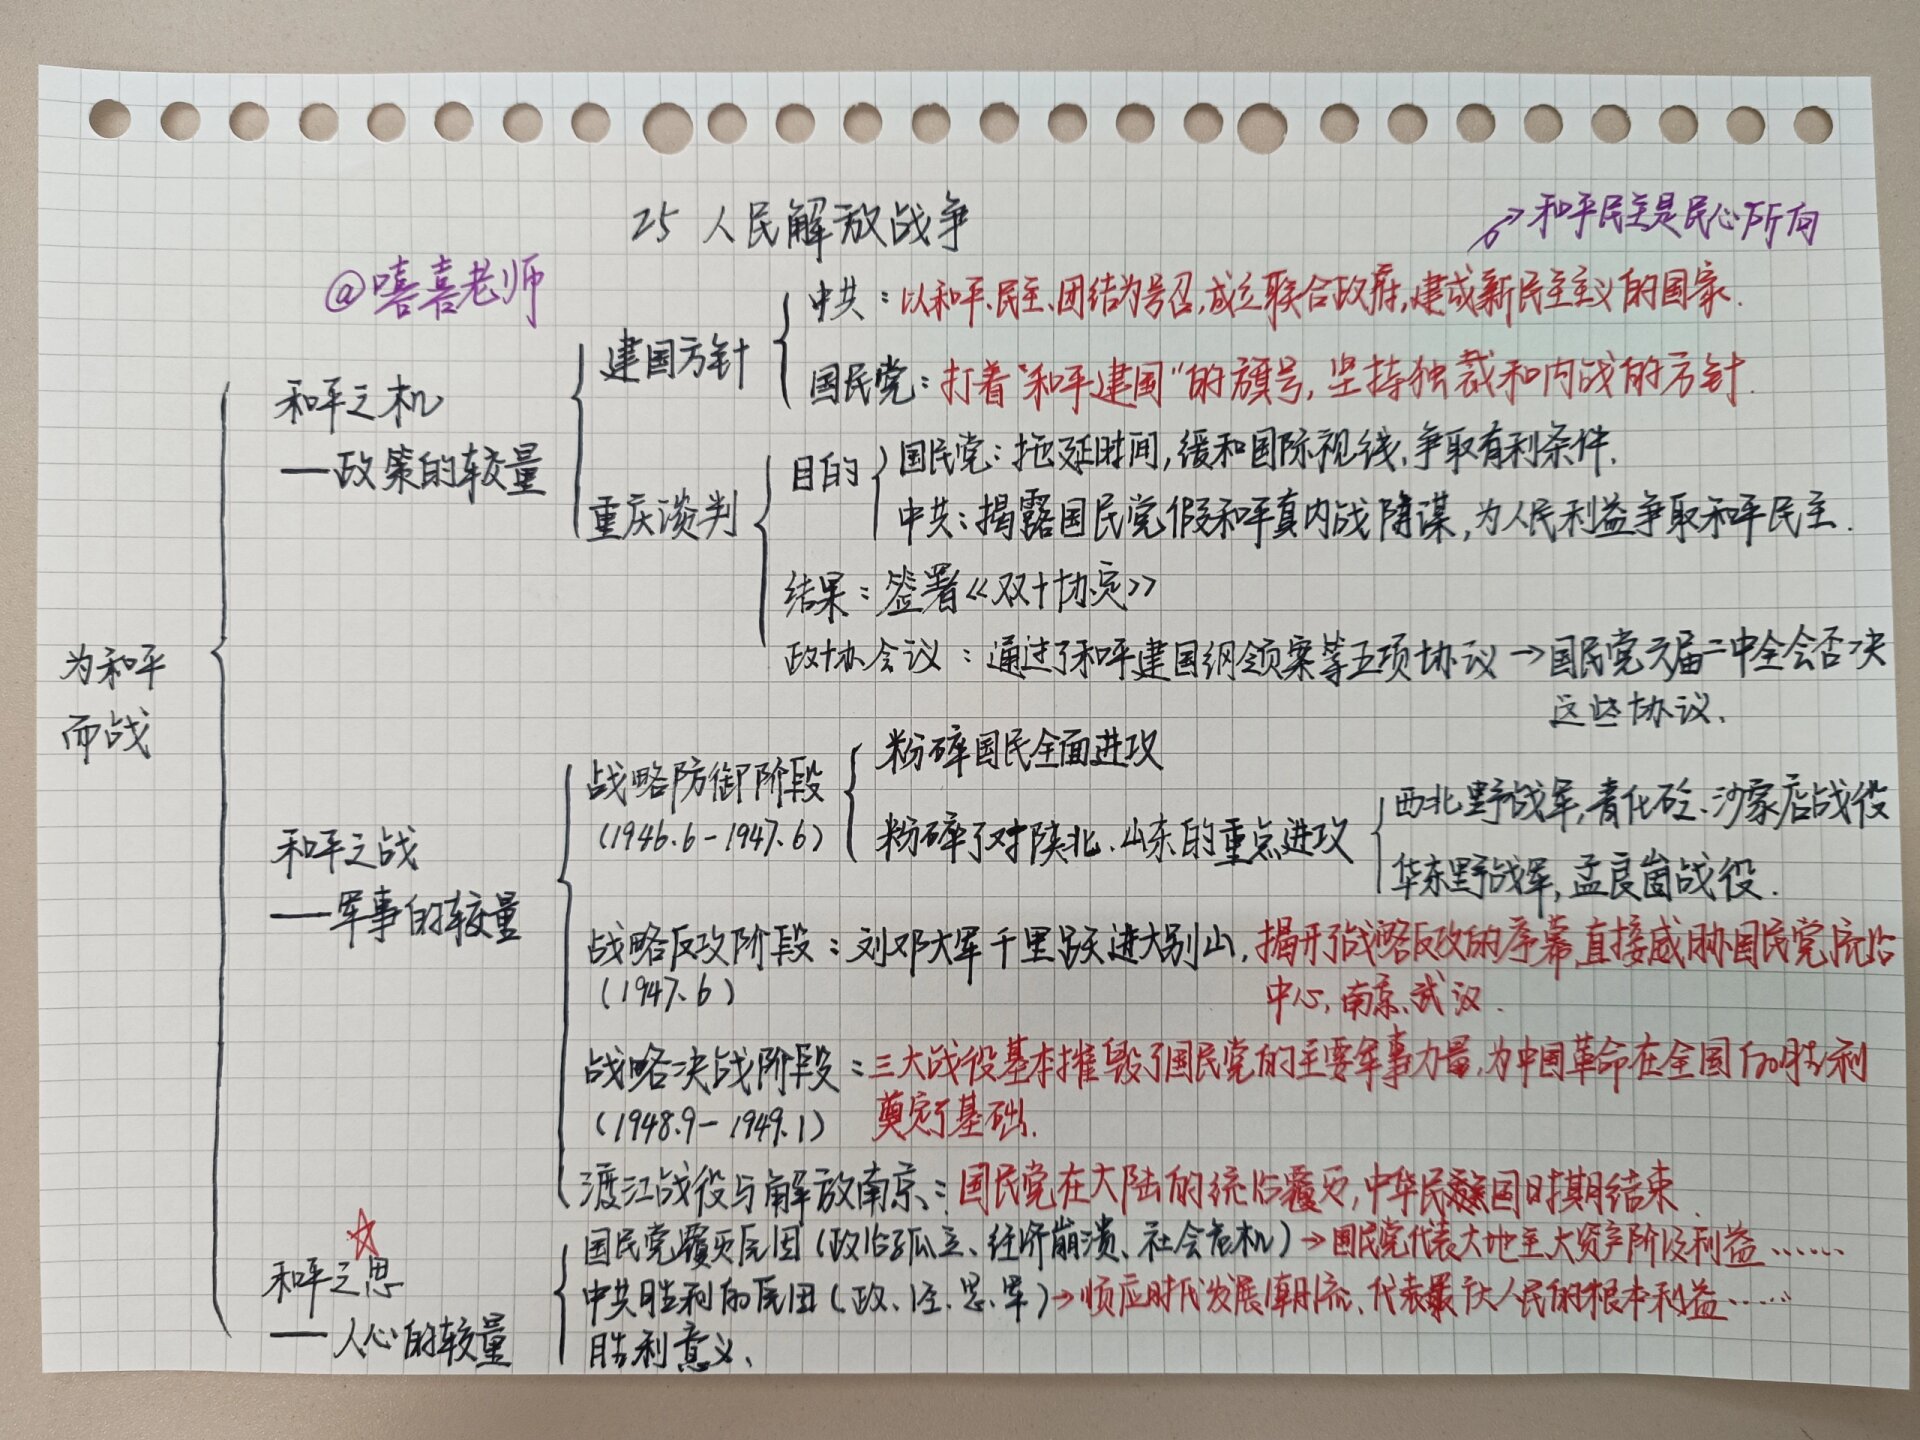 25 人民解放战争
@嘻喜老师
和平民主是民心所向
为和平
而战
和平之机
——政策的较量
建国方针
中共：以和平、民主、团结为号召,成立联合政府,建成新民主主义的国家.
国民党：打着“和平建国”的旗号，坚持独裁和内战的方针.
重庆谈判
目的
国民党：拖延时间，缓和国际视线、争取有利条件.
中共：揭露国民党假和平真内战阴谋，为人民利益争取和平民主.
结果：签署《双十协定》
政协会议：通过了和平建国纲领案等五项协议→国民党六届二中全会否决
这些协议.
和平之战
——军事的较量
战略防御阶段
(1946.6-1947.6)
粉碎国民全面进攻
粉碎了对陕北、山东的重点进攻
西北野战军,青化砭、沙家店战役
华东野战军,孟良崮战役.
战略反攻阶段：刘邓大军千里跃进大别山,揭开了战略反攻的序幕,直接威胁国民党统治
(1947.6)
中心,南京、武汉.
战略决战阶段：三大战役基本摧毁了国民党的主要军事力量,为中国革命在全国的胜利
(1948.9-1949.1)
奠定了基础.
渡江战役与解放南京：国民党在大陆的统治覆灭,中华民国时期结束.
和平之思
——人心的较量
国民党覆灭原因(政治孤立、经济崩溃、社会危机)→国民党代表大地主大资产阶级利益……
中共胜利的原因(政、经、思、军)→顺应时代发展潮流、代表最广大人民的根本利益……
胜利意义、